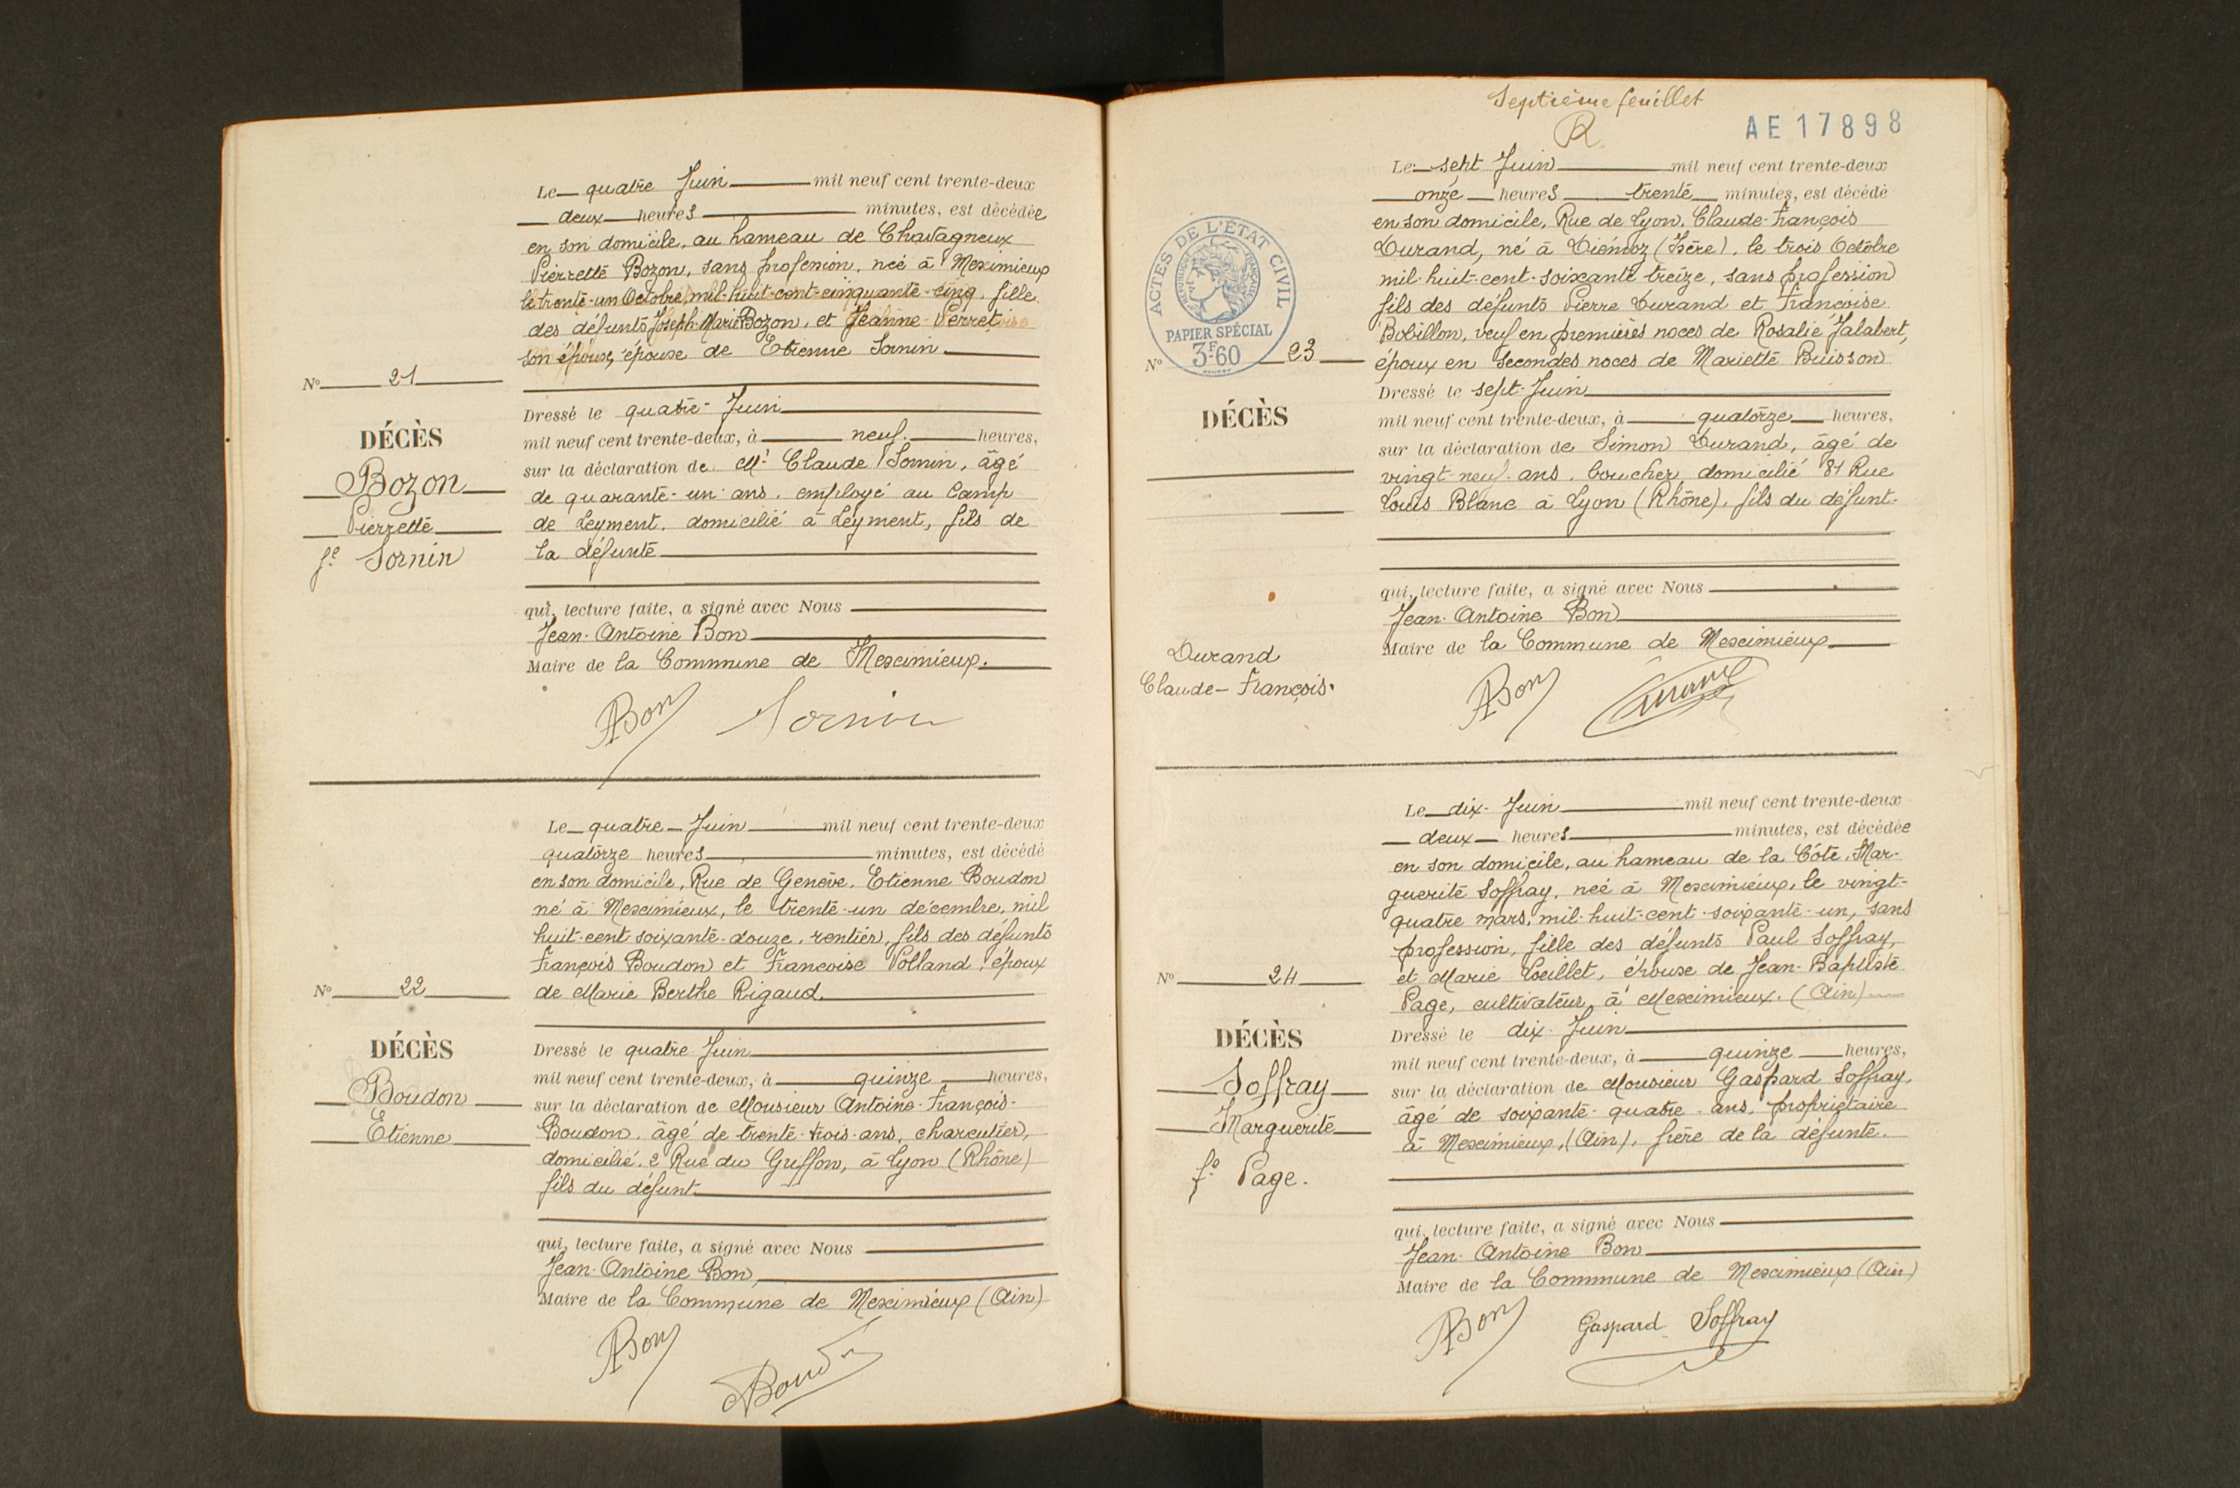 Le quatre Juin mil neuf cent trente-deux
deux heures minutes, est décédée
en son domicile, au hameau de Chavagneux
Pierrette Bozon, sans profession, née à Meximieux
le trente-un Octobre, mil-huit-cent-cinquante-cinq, fille
des défunts Joseph-Marie Bozon, et Jeanne Perret
son épouse, épouse de Etienne Sornin
No 21
DÉCÈS
Bozon
Pierrette
fe Sornin
Dressé le quatre-Juin
mil neuf cent trente-deux, à neuf heures,
sur la déclaration de Mr Claude Sornin, âgé
de quarante-un-ans, employé au Camp
de Leyment, domicilié à Leyment, fils de
la défunte
qui, lecture faite, a signé avec Nous
Jean-Antoine Bon
Maire de la Commune de Meximieux.
ABon Sornin
Le quatre Juin mil neuf cent trente-deux
quatorze heures minutes, est décédé
en son domicile, Rue de Genève, Etienne Boudon
né à Meximieux, le trente-un décembre, mil
huit-cent soixante-douze, rentier, fils des défunts
François Boudon et Francoise Polland, époux
de Marie Berthe Rigaud.
No 22
DÉCÈS
Boudon
Etienne
Dressé le quatre Juin
mil neuf cent trente-deux, à quinze heures,
sur la déclaration de Monsieur Antoine-François-
Boudon, âgé de trente-trois-ans, charcutier,
domicilié, 2 Rue du Griffon, à Lyon (Rhône)
fils du défunt.
qui, lecture faite, a signé avec Nous
Jean-Antoine Bon,
Maire de la Commune de Meximieux (Ain)
ABon
Septième feuillet
AE17898
Le sept Juin mil neuf cent trente-deux
onze heures trente minutes, est décédé
en son domicile, Rue de Lyon, Claude-François
Durand, né à Diémoz (Isère), le trois Octobre
mil-huit-cent-soixante treize, sans profession
fils des défunts Pierre Durand et Francoise
Bobillon, veuf en premières noces de Rosalie Jalabert,
époux en secondes noces de Mariette Buisson
ACTES DE L'ÉTAT CIVIL
RÉPUBLIQUE FRANÇAISE
PAPIER SPÉCIAL
3F60
No 23
DÉCÈS
Durand
Claude-François.
Dressé le sept-Juin
mil neuf cent trente-deux, à quatorze heures,
sur la déclaration de Simon Durand, âgé de
vingt-neuf-ans, boucher domicilié 81 Rue
Louis Blanc à Lyon (Rhône), fils du défunt.
qui, lecture faite, a signé avec Nous
Jean-Antoine Bon
Maire de la Commune de Meximieux
ABon Durand
Le dix-Juin mil neuf cent trente-deux
deux heures minutes, est décédée
en son domicile, au hameau de la Côte, Mar-
guerite Soffray, née à Meximieux, le vingt-
quatre mars, mil-huit-cent-soixante-un, sans
profession, fille des défunts Paul Soffray,
et Marie Voeillet, épouse de Jean-Baptiste
Page, cultivateur, à Meximieux. (Ain)
No 24
DÉCÈS
Soffray
Marguerite
fe Page.
Dressé le dix-Juin
mil neuf cent trente-deux, à quinze heures,
sur la déclaration de Monsieur Gaspard Soffray,
âgé de soixante-quatre-ans, propriétaire
à Meximieux, (Ain), frère de la défunte.
qui, lecture faite, a signé avec Nous
Jean-Antoine Bon
Maire de la Commune de Meximieux (Ain)
ABon Gaspard Soffray